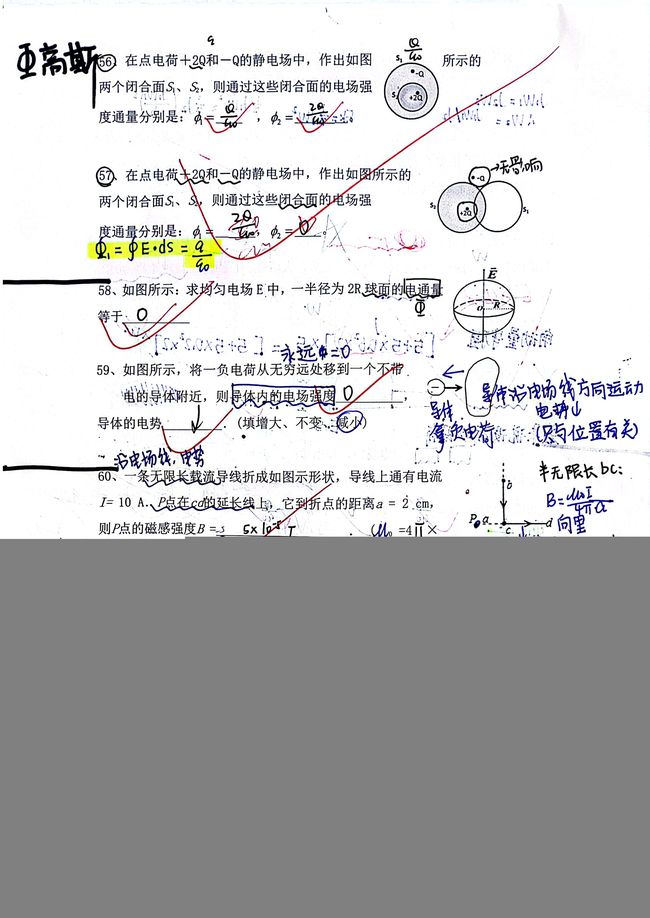 亚高斯
56、在点电荷+2Q和-Q的静电场中，作出如图 所示的
两个闭合面S₁、S₂，则通过这些闭合面的电场强
度通量分别是：ϕ₁= Q/ε₀ ，ϕ₂= 2Q/ε₀
-Q
+2Q
57、在点电荷+2Q和-Q的静电场中，作出如图所示的
两个闭合面S₁、S₂，则通过这些闭合面的电场强
度通量分别是：ϕ₁= 2Q/ε₀，ϕ₂= 0。
Φ₁=∮E•ds=q/ε₀
-Q
+2Q
S₁
S₂
58、如图所示：求均匀电场 E 中，一半径为 2R 球面的电通量
等于 0
Φ
E
O
R
永远Φ=0
59、如图所示，将一负电荷从无穷远处移到一个不带
电的导体附近，则导体内的电场强度 0 ，
导体的电势 ↓ ．（填增大、不变、减小）
导体沿电场线方向运动
电势↓
(只与位置有关)
导体
沿电场线,电势
60、一条无限长载流导线折成如图示形状，导线上通有电流
I= 10 A．P点在cd的延长线上，它到折点的距离a = 2 cm，
则P点的磁感强度B = 5×10⁻⁵ T
(μ₀ =4π×
半无限长bc:
B=μ₀I/4πa
向里
b
P a c d